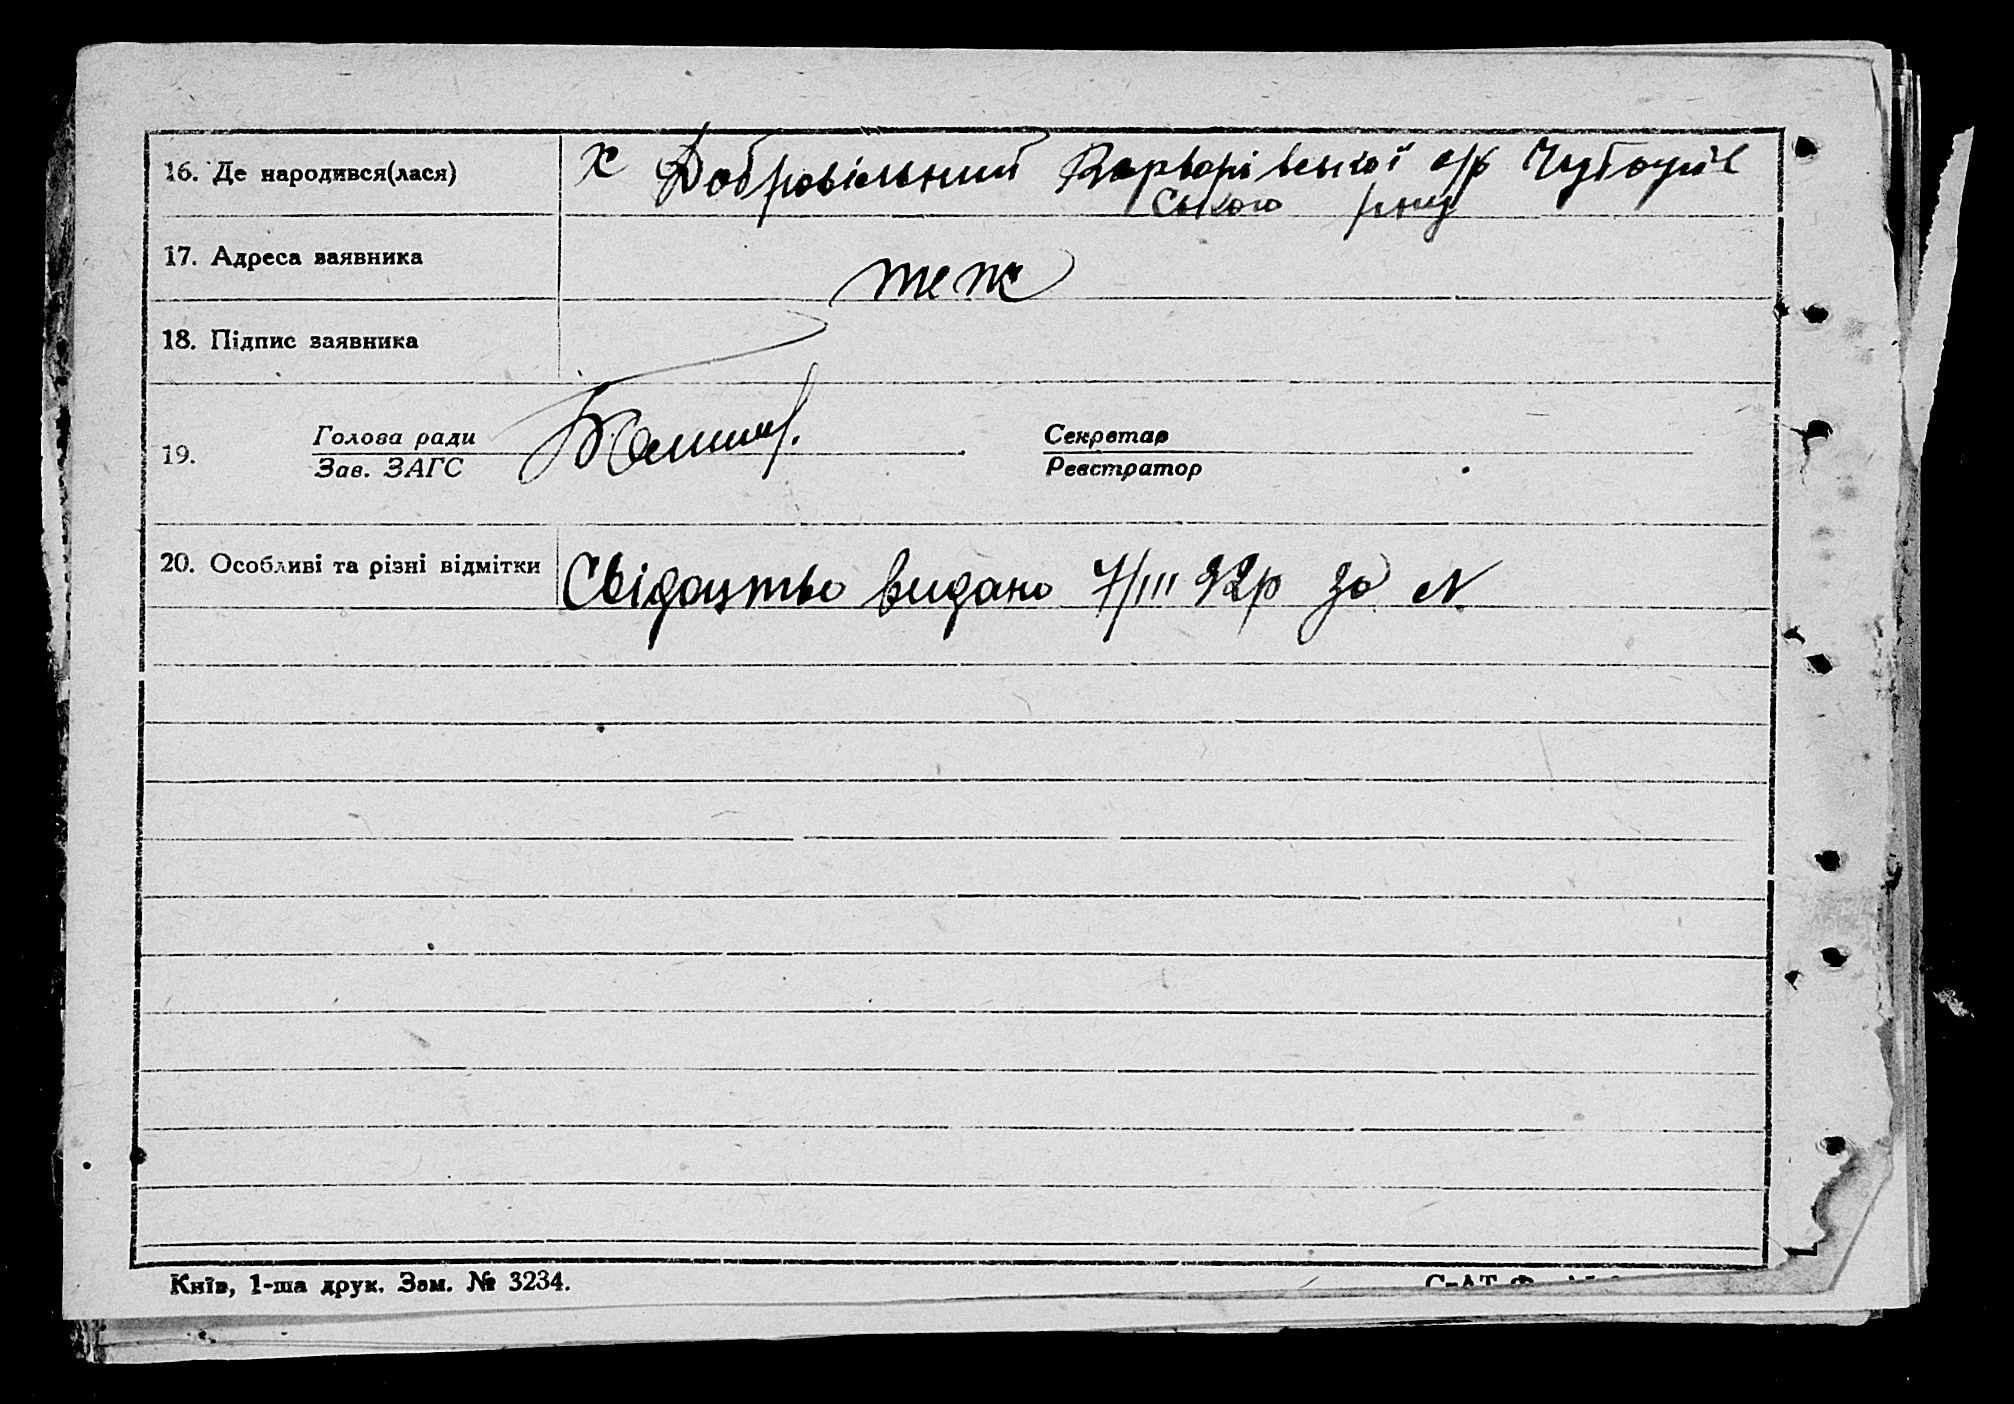 16. Де народився(лася) х Добровільний Варварівської с/р Чутоуків
ського р-ну
17. Адреса заявника теж
18. Підпис заявника
19. Голова ради Секретар
Зав. ЗАГС Реєстратор
20. Особливі та різні відмітки Свідоцтво видано 7/III 92р за №
Київ, 1-ша друк. Зам. № 3234.